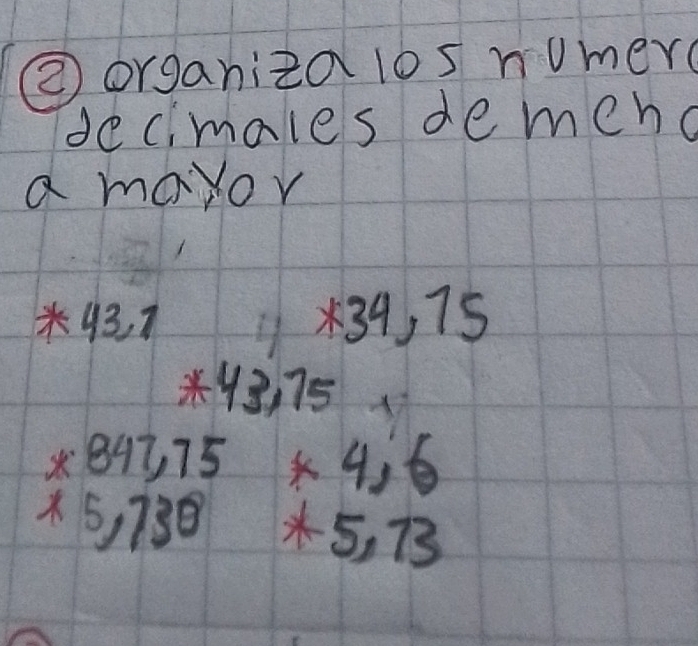 2 organiza los numero
decimales de meno
a mayor
* 43,1 * 34,75
* 43,75
* 847,75 * 4,6
* 5,738 * 5,73